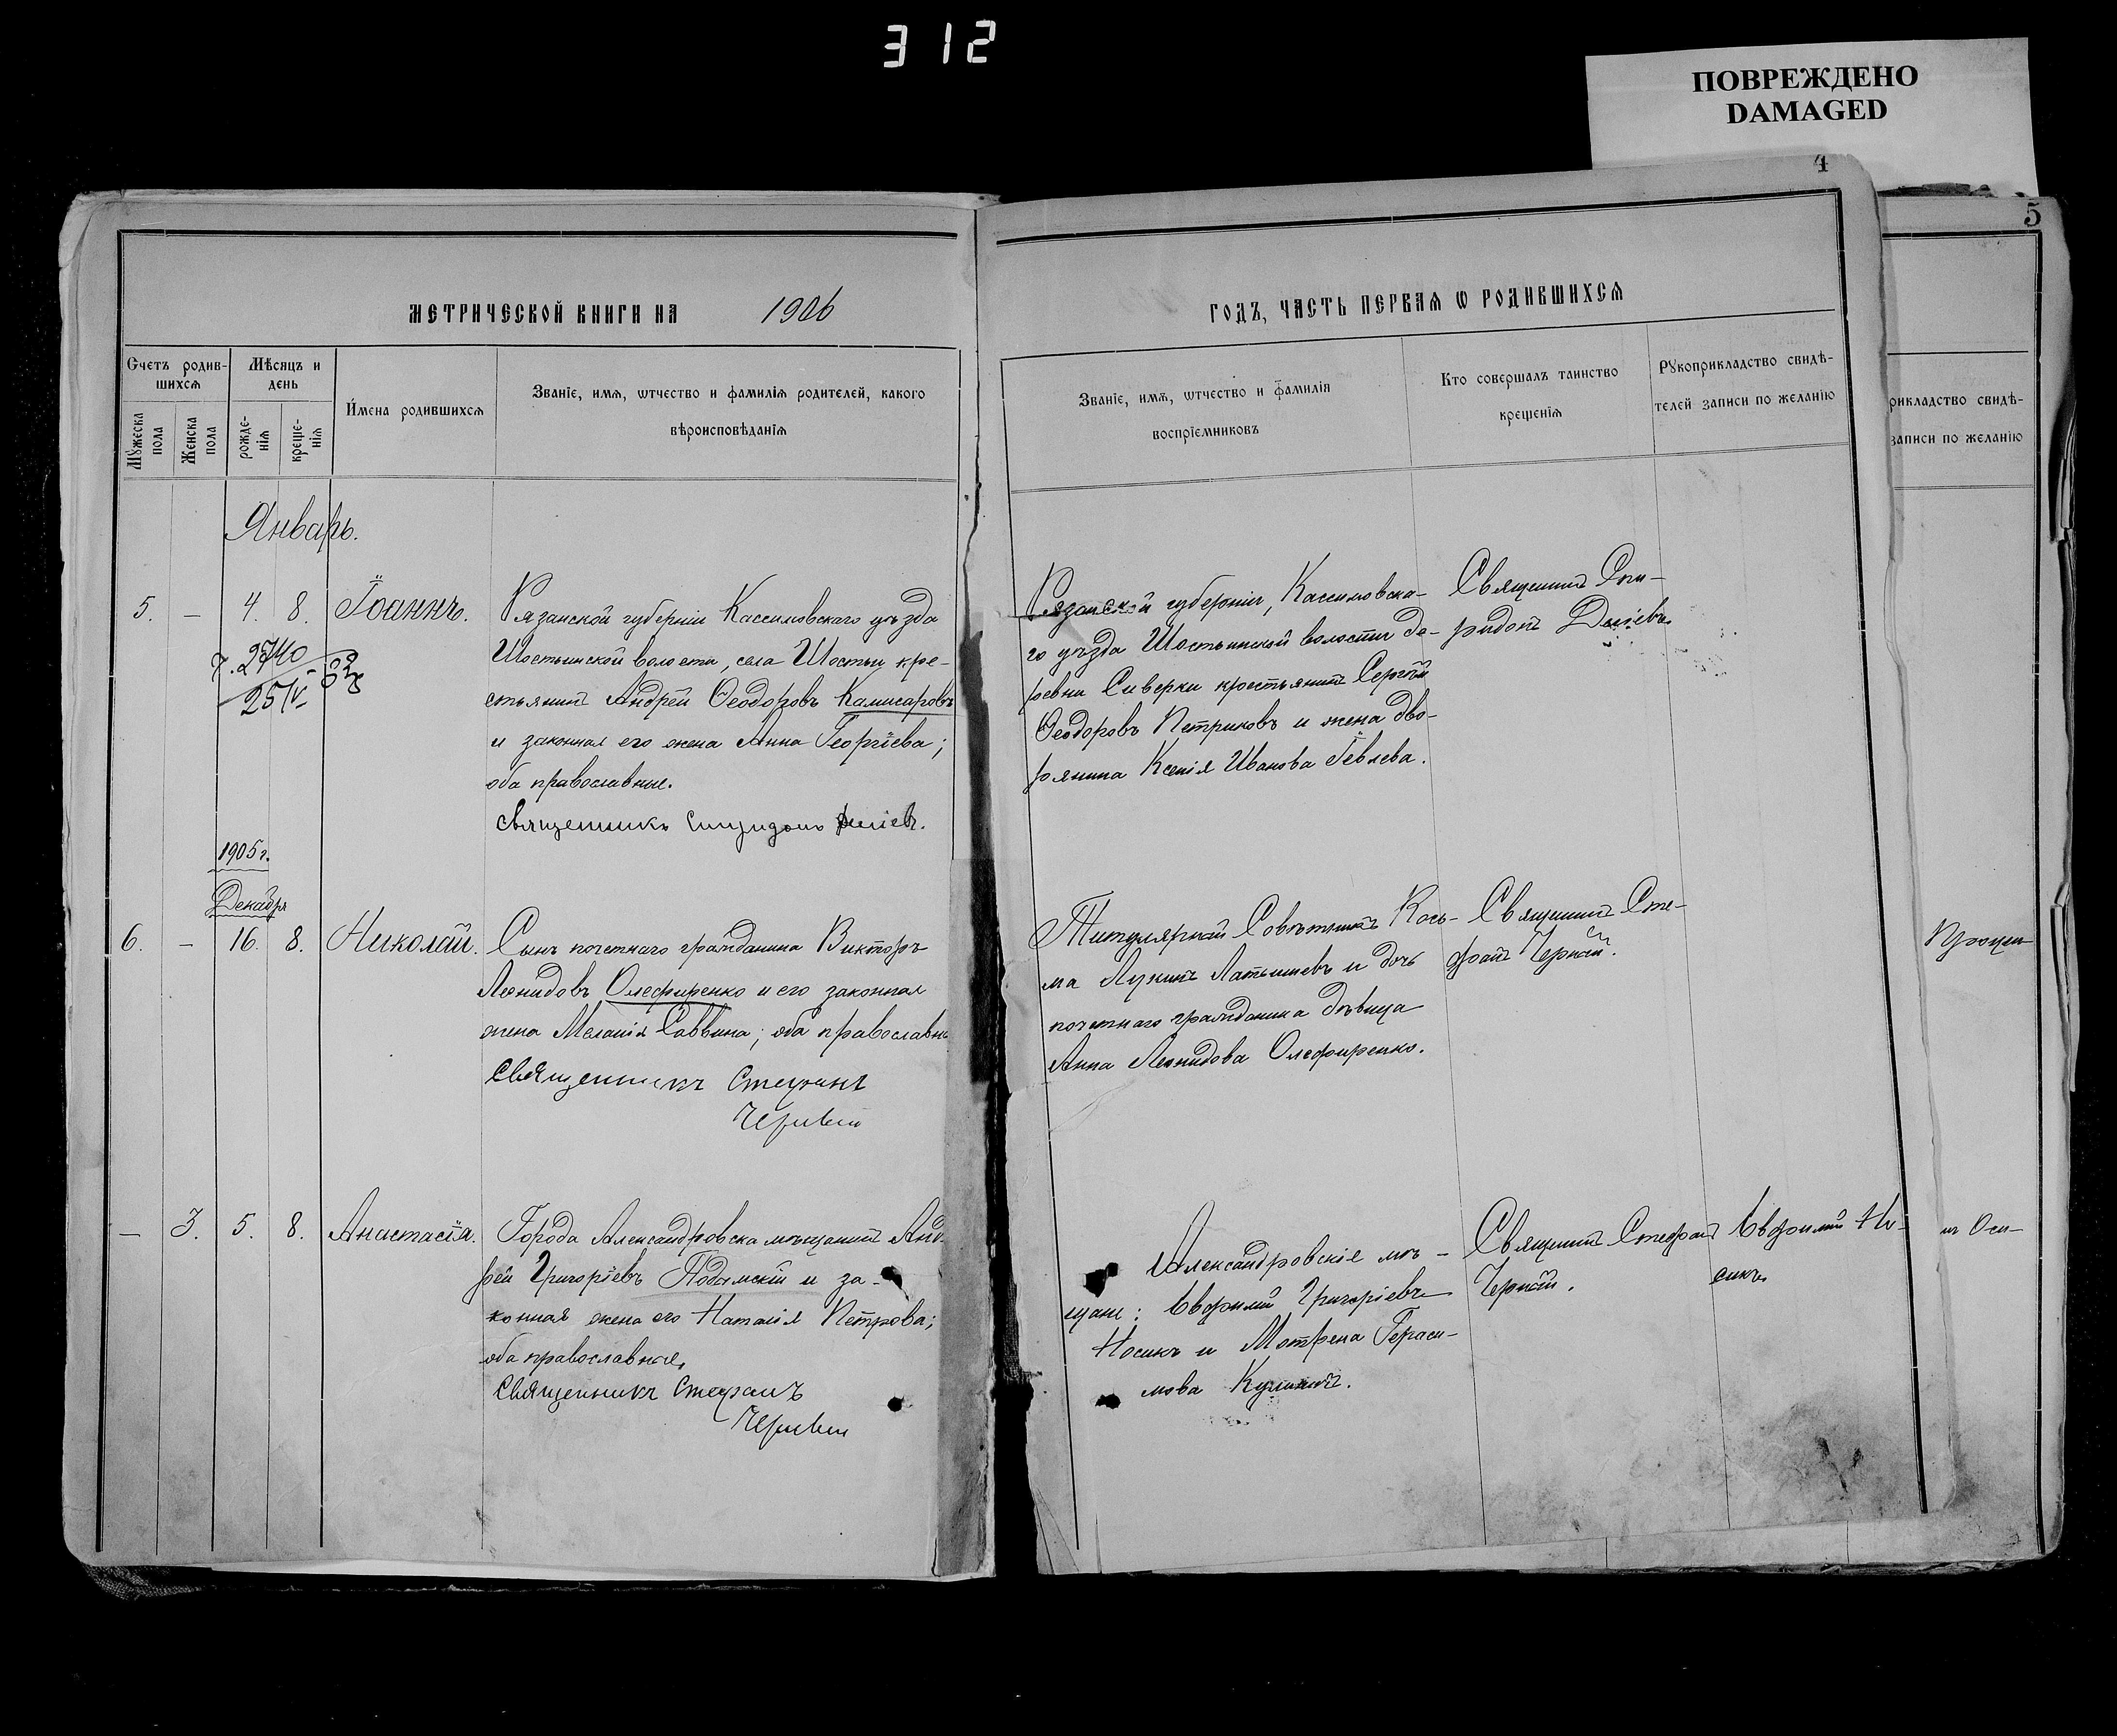 312
ПОВРЕЖДЕНО
DAMAGED
4
5
МЕТРИЧЕСКОЙ КНИГИ НА 1906
ГОДЪ, ЧАСТЬ ПЕРВАѦ Ѡ РОДИВШИХСѦ
Счетъ родив-
шихсѧ
Мѣсяцъ и
день
Имена родившихсѧ
Званіе, имѧ, ѡтчество и фамилія родителей, какого
вѣроисповѣданіѧ
Мужеска
пола
Женска
пола
рожде-
нія
креще-
нія
Званіе, имѧ, ѡтчество и фамилія
воспріемниковъ
Кто совершалъ таинство
крещеніѧ
Рукоприкладство свидѣ-
телей записи по желанію
рикладство свидѣ-
записи по желанію
Январь.
5. — 4. 8. Іоаннъ.
Рязанской губерніи Кассимовскаго уѣзда
Шостьинской волости, села Шостьи кре-
стьянинъ Андрей Ѳеодоровъ Камисаровъ
и законная его жена Анна Георгіева;
оба православные.
Священникъ Спиридонъ
Рязанской губерніи, Кассимовска-
го уѣзда Шостьинской волости де-
ревни Сиверки крестьянинъ Сергѣй
Ѳеодоровъ Петриковъ и жена дво-
рянина Ксенія Иванова Іевлева.
Священникъ Спи-
ридонъ
2740
25/V
1905 г.
Декабря
6. — 16. 8. Николай.
Сынъ почетнаго гражданина Викторъ
Леонидовъ Олефиренко и его законная
жена Меланія Саввина; оба православны
Священникъ Стефанъ
Черный
Титулярный Совѣтникъ Козь-
ма Лукинъ Латышевъ и дочь
почетнаго гражданина дѣвица
Анна Леонидова Олефиренко.
Священникъ Сте-
фанъ Черный.
— 3. 5. 8. Анастасія.
Города Александровска мѣщанинъ Анд-
рей Григоріевъ Подымскій и за-
конная жена его Наталія Петрова;
оба православные.
Священникъ Стефанъ
Черный
Александровскіе мѣ-
щане: Евфимій Григоріевъ
Носикъ и Мотрена Гераси-
мова
Священникъ Стефанъ
Черный.
Евфимій Но-
сикъ